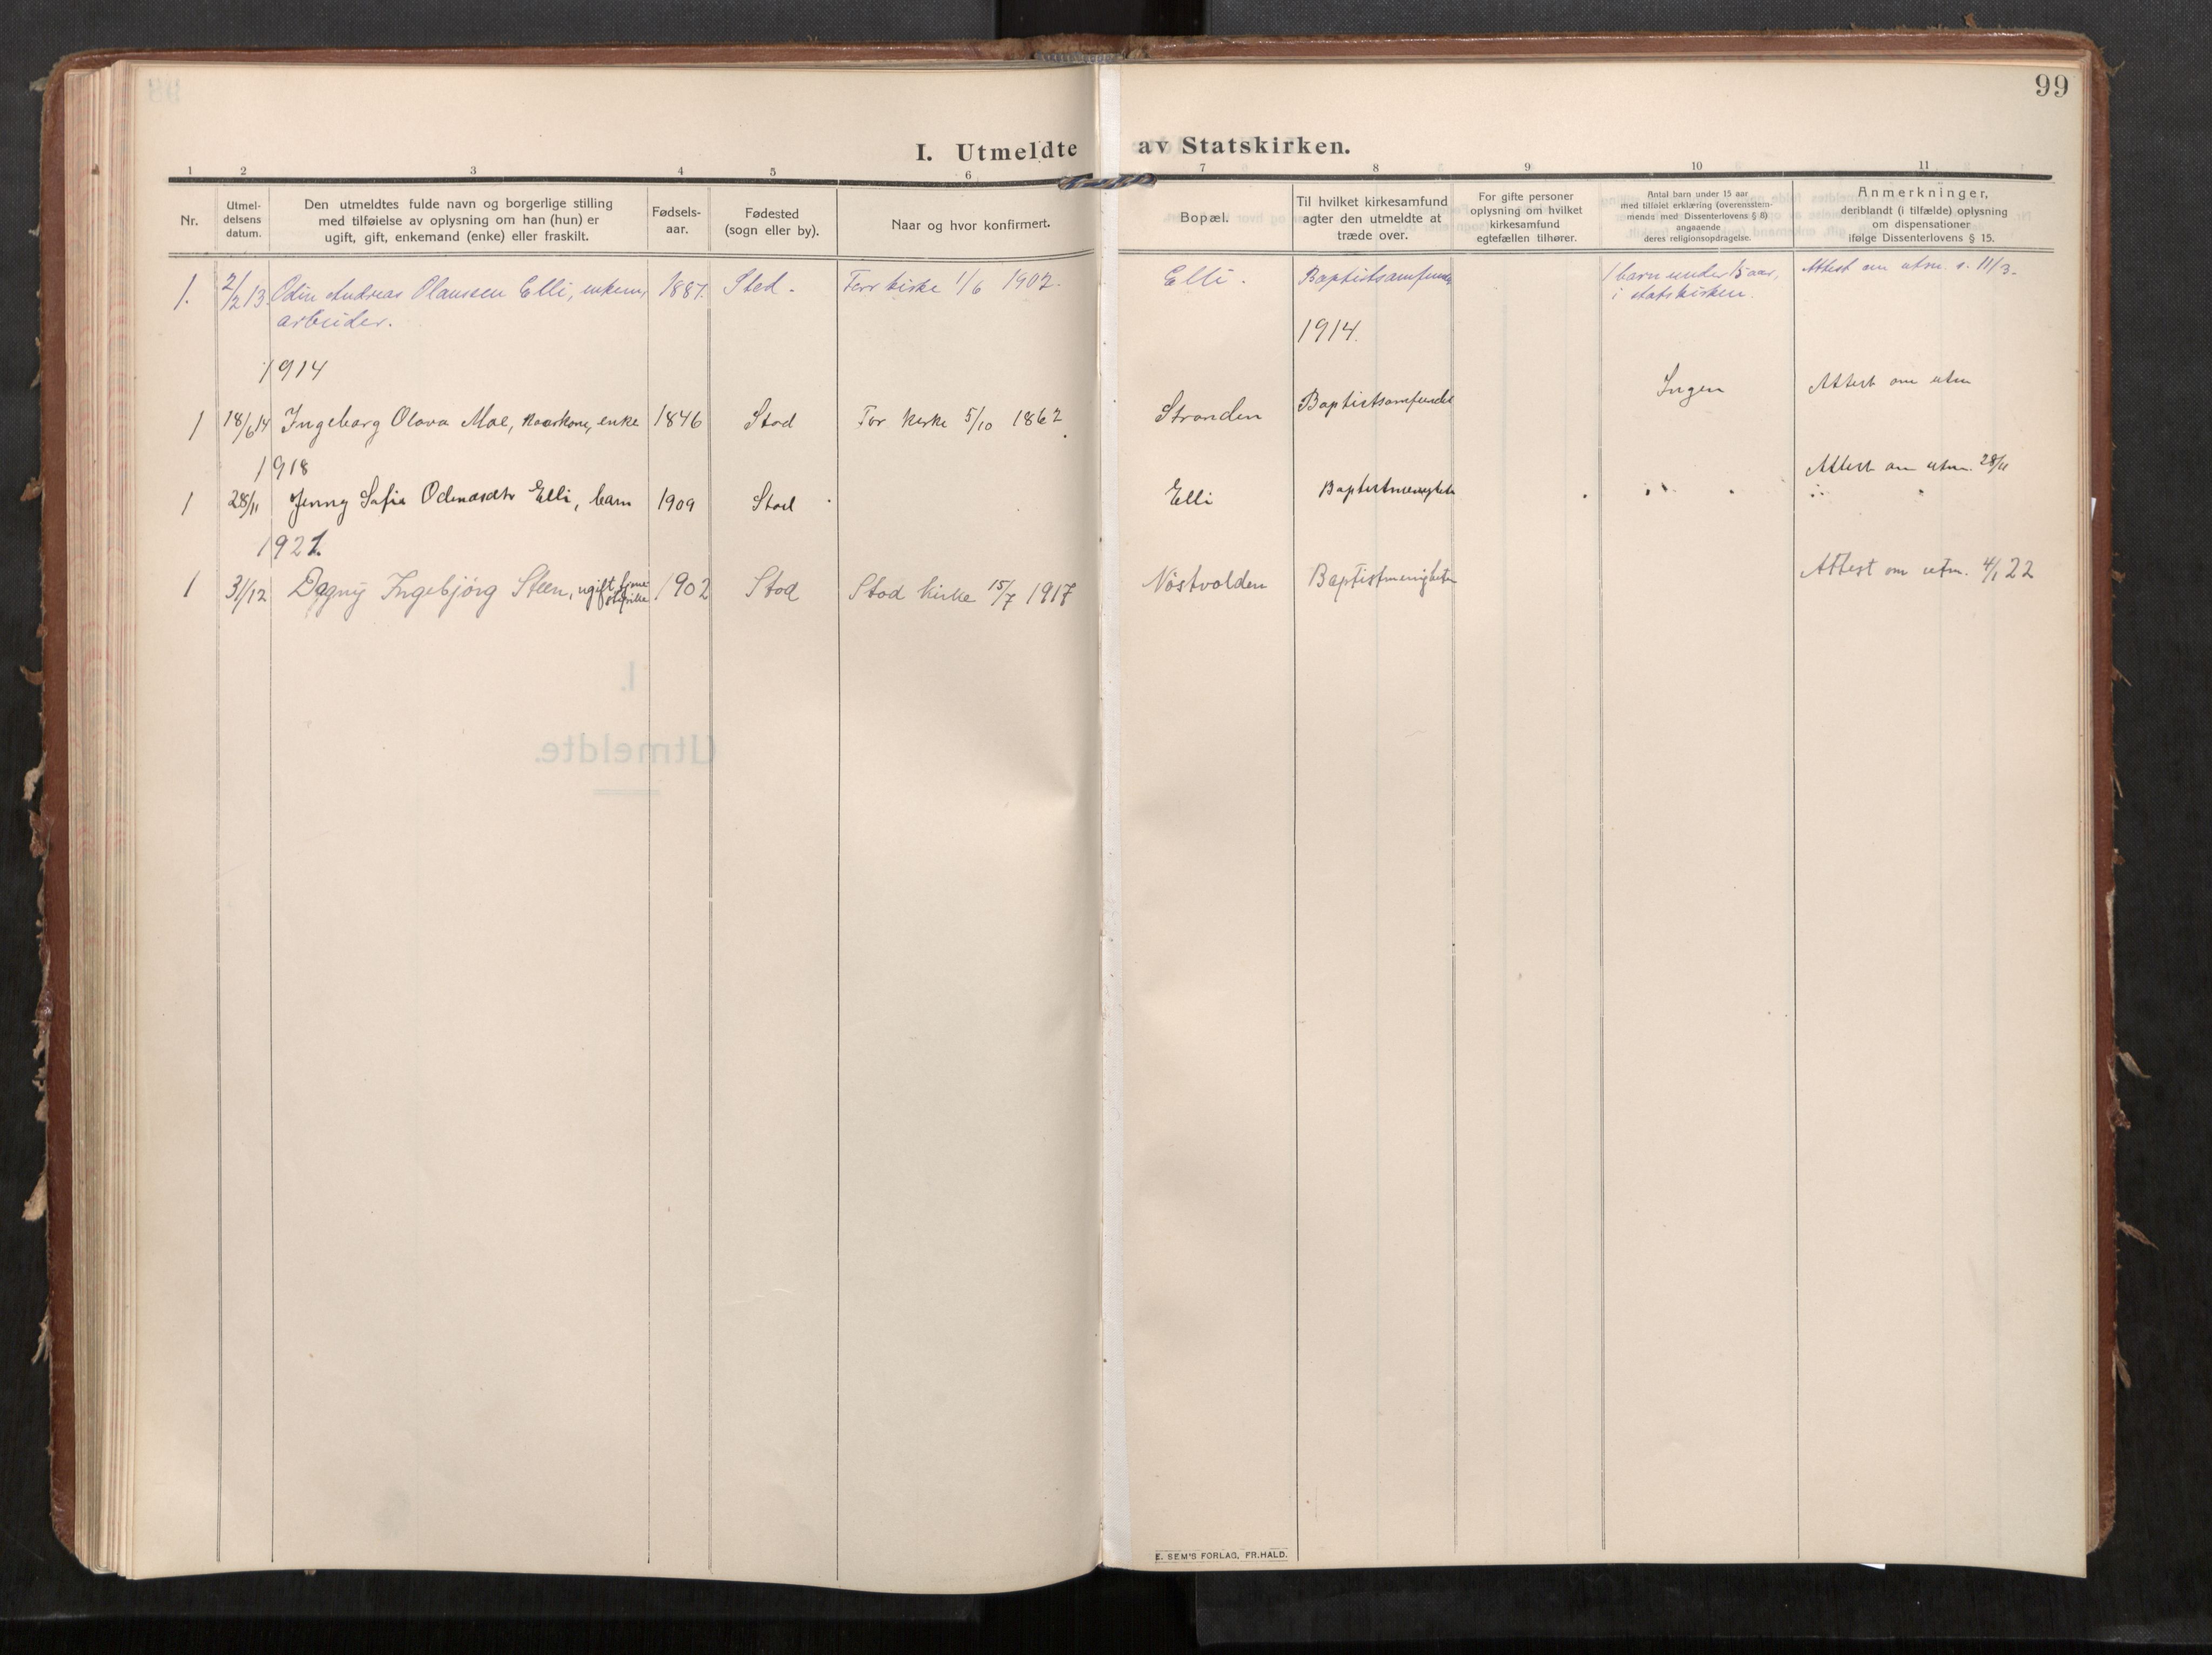 99
I. Utmeldte av Statskirken.
1 2 3 4 5 6 7 8 9 10 11
Nr.
Utmel-
delsens
datum.
Den utmeldtes fulde navn og borgerlige stilling
med tilføielse av oplysning om han (hun) er
ugift, gift, enkemand (enke) eller fraskilt.
Fødsels-
aar.
Fødested
(sogn eller by).
Naar og hvor konfirmert.
Bopæl.
Til hvilket kirkesamfund
agter den utmeldte at
træde over.
For gifte personer
oplysning om hvilket
kirkesamfund
egtefællen tilhører.
Antal barn under 15 aar
med tilføiet erklæring (overensstem-
mende med Dissenterlovens § 8)
angaaende
deres religionsopdragelse.
Anmerkninger,
deriblandt (i tilfælde) oplysning
om dispensationer
ifølge Dissenterlovens § 15.
1. 2/2 13 Odin Andreas Olaussen Elli, enkem, 1887. Stod. For kirke 1/6 1902. Elli. Baptistsamfundet 1 barn under 15 aar, Attest om utm. s. 11/3.
arbeider. i statskirken.
1914.
1914
1 18/6 14 Ingeborg Olava Moe, kaarkone, enke 1846 Stod For kirke 5/10 1862. Stranden Baptistsamfundet Ingen Attest om utm
1918
1 28/11 Jenny Sofia Odinsdtr Elli, barn 1909 Stod Elli Baptistmenigheten Attest om utm. 28/11
1921.
1 31/12 Dagny Ingebjørg Steen, ugift 1902 Stod Stod kirke 15/7 1917 Nöstvolden Baptistmenigheten Attest om utm. 4/1 22
I.
Utmeldte.
E. SEM'S FORLAG, FR.HALD.